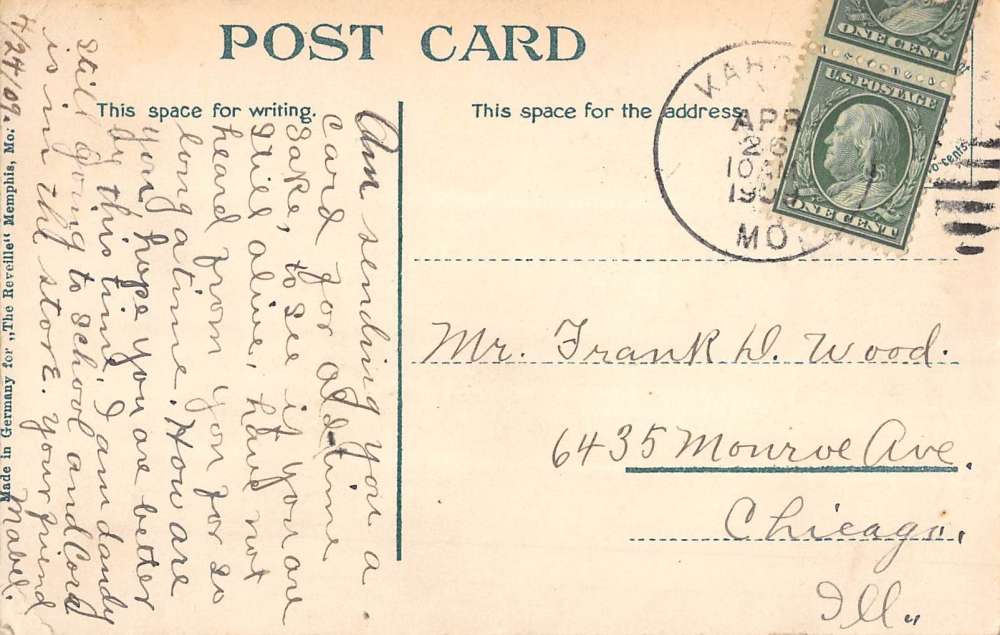 POST CARD
This space for writing.
This space for the address.
Am sending you a
card for old time
sake, to see if you are
still alive, have not
heard from you for so
long a time. How are
you, hope you are better
by this time. I am dandy
still going to school and Cord
is in the store. Your friend
Mabel.
4/24/09.
Made in Germany for „The Reveille" Memphis, Mo.
APR
26
10 AM
MO.
U.S. POSTAGE
ONE CENT
ONE CENT
Mr. Frank D. Wood.
6435 Monroe Ave.
Chicago,
Ill.